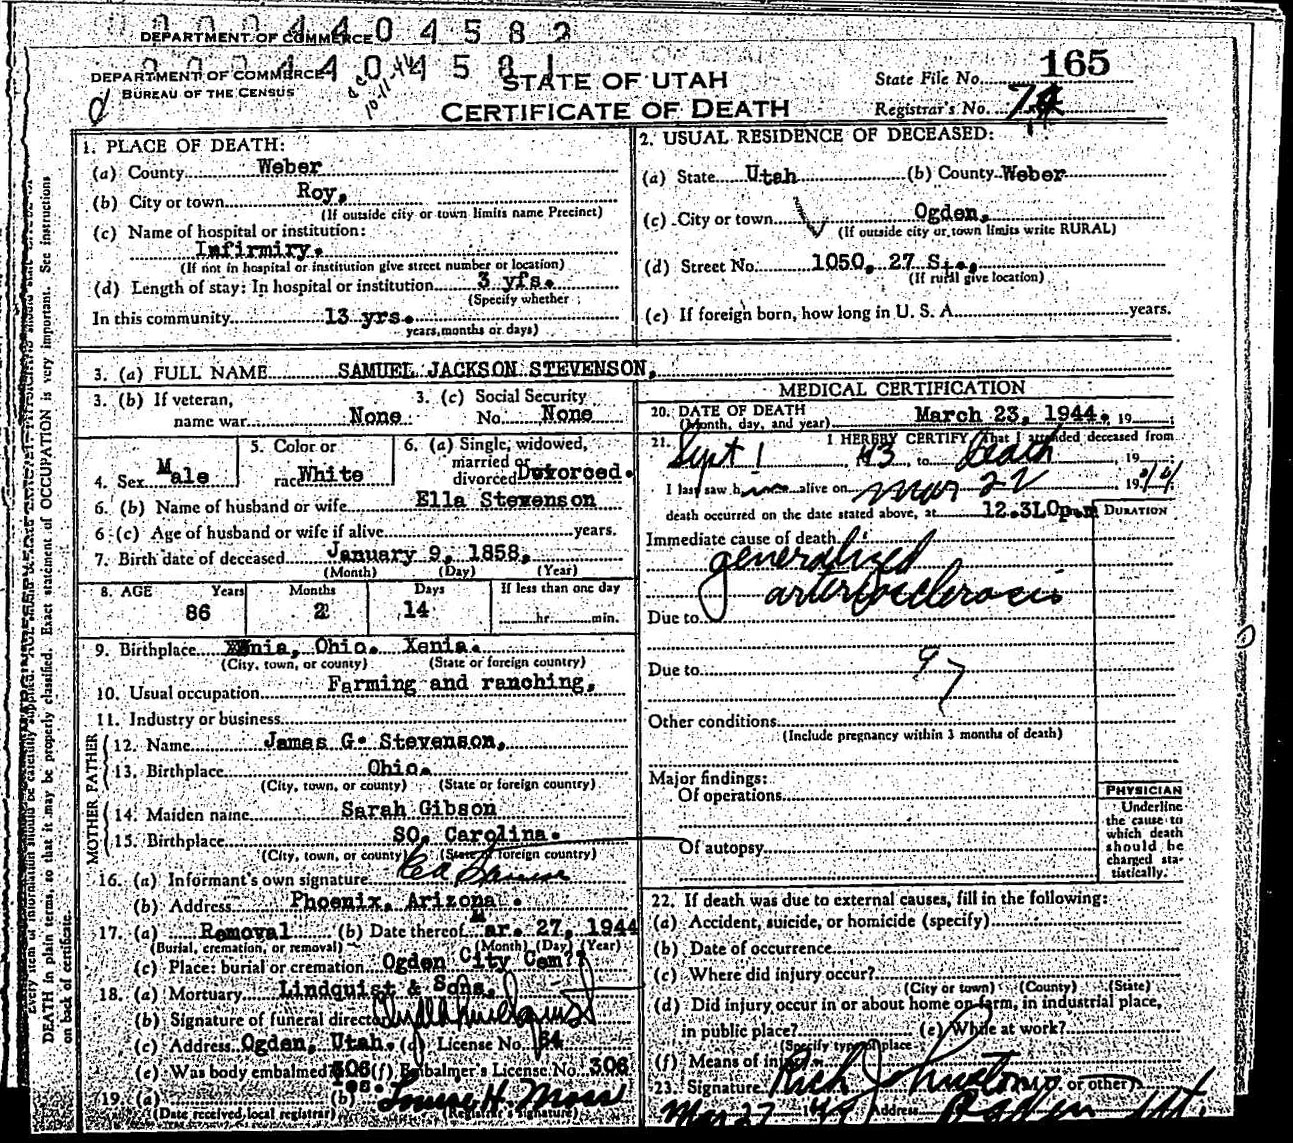 0004404582
DEPARTMENT OF COMMERCE
0004404581
DEPARTMENT OF COMMERCE
BUREAU OF THE CENSUS
10-11-44
STATE OF UTAH
CERTIFICATE OF DEATH
State File No. 165
Registrar's No.
1. PLACE OF DEATH:
(a) County Weber
(b) City or town Roy,
(If outside city or town limits name Precinct)
(c) Name of hospital or institution:
Infirmiry.
(If not in hospital or institution give street number or location)
(d) Length of stay: In hospital or institution 3 yrs.
(Specify whether
In this community 13 yrs.
years, months or days)
2. USUAL RESIDENCE OF DECEASED:
(a) State Utah (b) County Weber
(c) City or town Ogden,
(If outside city or town limits write RURAL)
(d) Street No. 1050, 27 St.,
(If rural give location)
(e) If foreign born, how long in U. S. A. years.
3. (a) FULL NAME SAMUEL JACKSON STEVENSON,
3. (b) If veteran, name war None
3. (c) Social Security No. None
4. Sex Male
5. Color or race White
6. (a) Single, widowed, married or divorced Divorced.
6. (b) Name of husband or wife Ella Stevenson
6 (c) Age of husband or wife if alive years.
7. Birth date of deceased January 9, 1858,
(Month) (Day) (Year)
8. AGE Years Months Days If less than one day
86 2 14 hr. min.
9. Birthplace Xenia, Ohio. Xenia.
(City, town, or county) (State or foreign country)
10. Usual occupation Farming and ranching,
11. Industry or business
FATHER
12. Name James G. Stevenson,
13. Birthplace Ohio.
(City, town, or county) (State or foreign country)
MOTHER
14. Maiden name Sarah Gibson
15. Birthplace SO, Carolina.
(City, town, or county) (State or foreign country)
16. (a) Informant's own signature
(b) Address Phoenix, Arizona.
17. (a) Removal (b) Date thereof Mar. 27, 1944
(Burial, cremation, or removal) (Month) (Day) (Year)
(c) Place: burial or cremation Ogden City Cem??
18. (a) Mortuary Lindquist & Sons,
(b) Signature of funeral director
(c) Address Ogden, Utah. (d) License No.
(e) Was body embalmed Yes. (f) Embalmer's License No. 306
19. (a) (b) Louise H. Moss
(Date received local registrar) (Registrar's signature)
MEDICAL CERTIFICATION
20. DATE OF DEATH March 23, 1944. 19
(Month, day, and year)
21. I HEREBY CERTIFY That I attended deceased from
Sept 1 43, to Death, 19
I last saw him alive on Mar 22 1944
death occurred on the date stated above, at 12.3L0p.m DURATION
Immediate cause of death
generalized
arteriosclerosis
Due to
Due to
97
Other conditions
(Include pregnancy within 3 months of death)
Major findings:
Of operations
Of autopsy
PHYSICIAN
Underline
the cause to
which death
should be
charged sta-
tistically.
22. If death was due to external causes, fill in the following:
(a) Accident, suicide, or homicide (specify)
(b) Date of occurrence
(c) Where did injury occur?
(City or town) (County) (State)
(d) Did injury occur in or about home on farm, in industrial place,
in public place? (e) While at work?
(Specify type of place
(f) Means of injury
23. Signature Rich Johnston or other)
Mar 27 Address Ogden Ut.
DEATH in plain terms, so that it may be properly classified. Exact statement of OCCUPATION is very important. See instructions
on back of certificate.